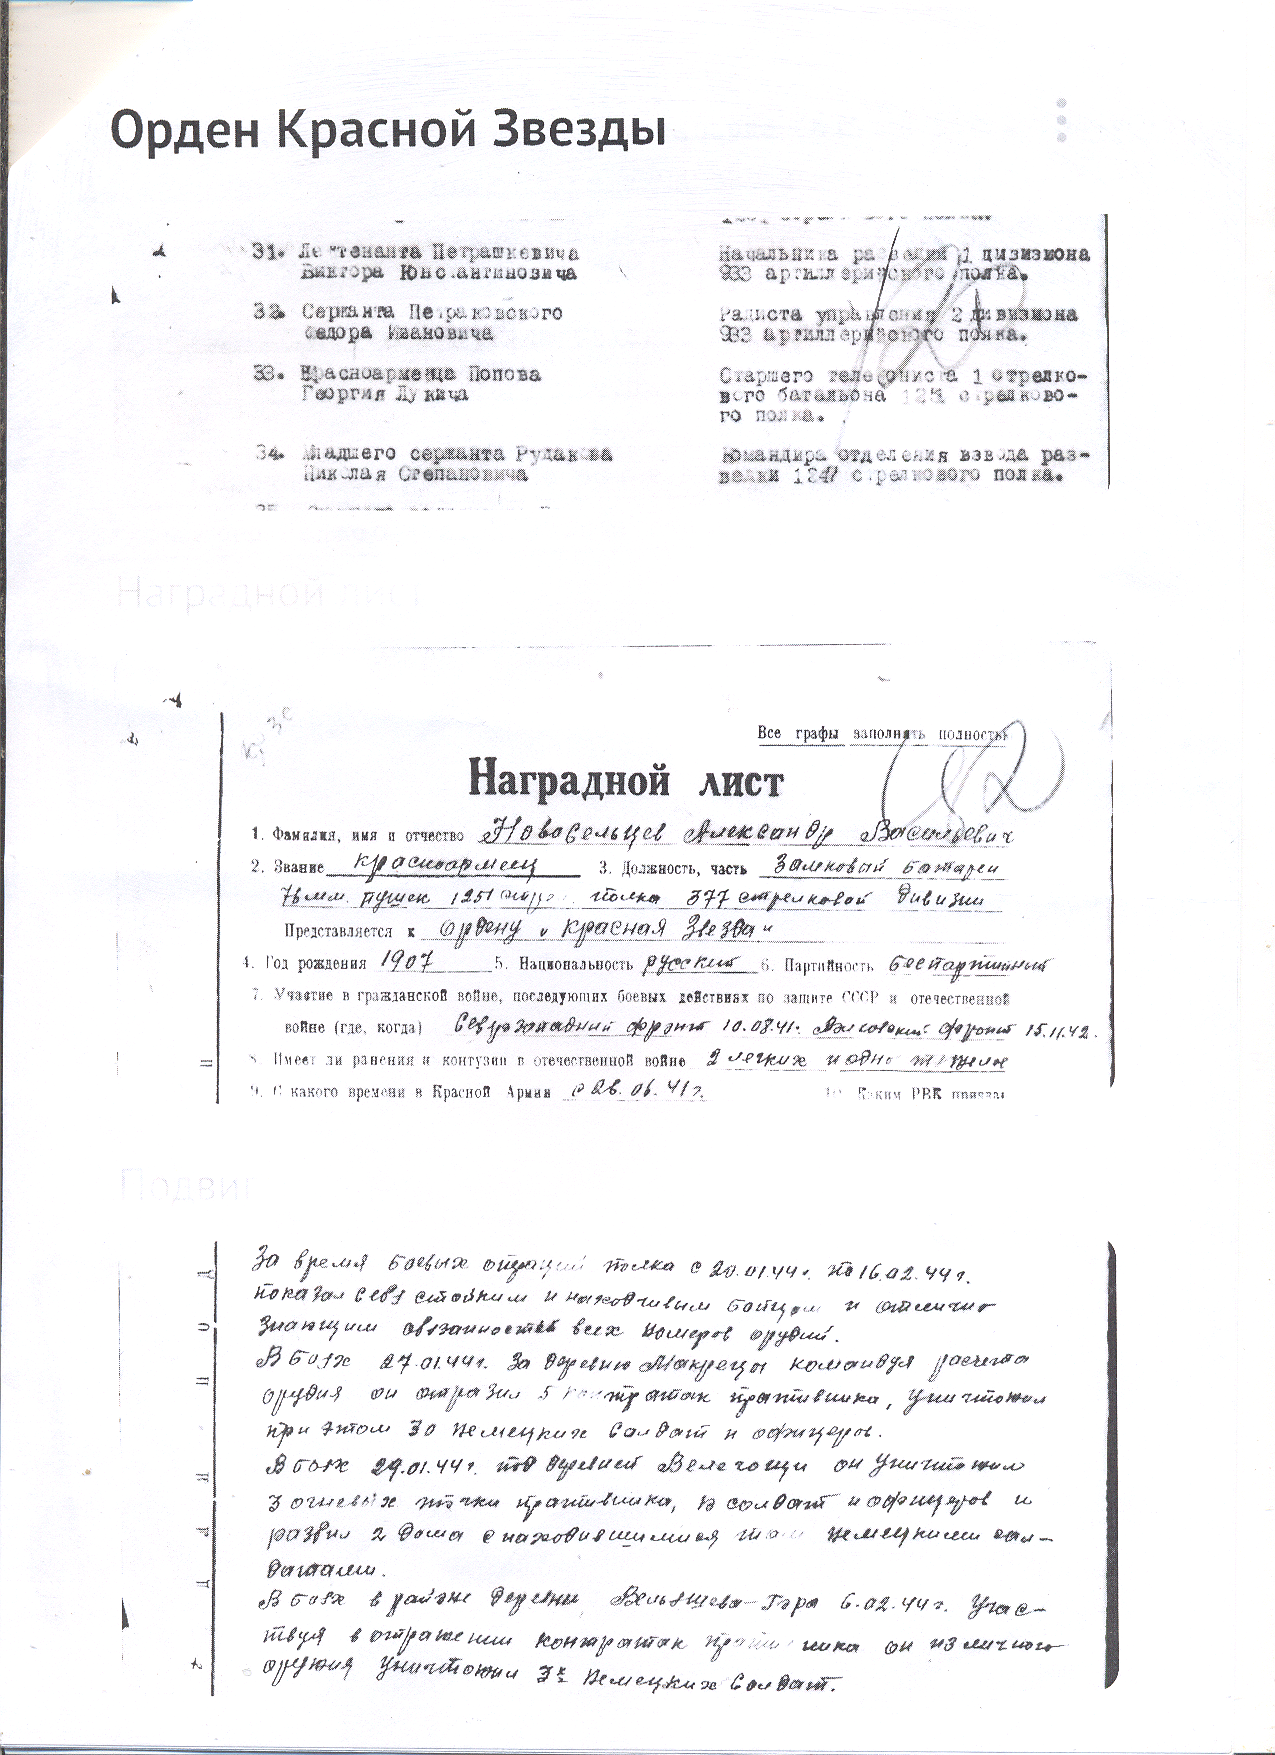 Орден Красной Звезды
31. Лейтенанта Петрашкевича
Виктора Константиновича
Начальника разведки 1 дивизиона
933 артиллерийского полка.
32. Сержанта Петраковского
Федора Ивановича
Радиста управления 2 дивизиона
933 артиллерийского полка.
33. Красноармейца Попова
Георгия Лукича
Старшего телефониста 1 стрелко-
вого батальона стрелково-
го полка.
34. Младшего сержанта Рудакова
Николая Степановича
Командира отделения взвода раз-
ведки 1247 стрелкового полка.
Наградной лист
Все графы заполнять полностью
Наградной лист
1. Фамилия, имя и отчество Новосельцев Александр Васильевич
2. Звание красноармеец 3. Должность, часть Замковый батареи
76 мм. пушек 1251 полка 377 стрелковой дивизии
Представляется к ордену „Красная Звезда"
4. Год рождения 1907 5. Национальность русский 6. Партийность беспартийный
7. Участие в гражданской войне, последующих боевых действиях по защите СССР и отечественной
войне (где, когда) Северозападный фронт 10.08.41. фронт 15.11.42.
8. Имеет ли ранения и контузии в отечественной войне 2 легких и одно тяжелое
9. С какого времени в Красной Армии с 28.06.41 г. 10. Каким РВК призван
Подвиг
За время боевых операций полка с 20.01.44 г. по 16.02.44 г.
показал себя стойким и находчивым бойцом и отлично
знающим обязанности всех номеров орудий.
В боях 27.01.44 г. за деревню Макрецы командуя расчета
орудия он отразил 5 контратак противника, уничтожил
при этом 30 немецких солдат и офицеров.
В боях 29.01.44 г. под деревней Велегощи он уничтожил
3 огневых точки противника, солдат и офицеров и
разбил 2 дома с находившимися там немецкими сол-
датами.
В боях в районе деревни Вельяшева-Гора 6.02.44 г. учас-
твуя в отражении контратак противника он из личного
оружия уничтожил 3х немецких солдат.